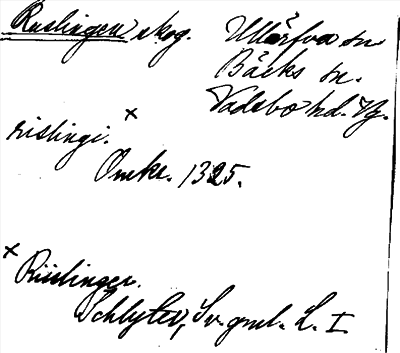 Ruslingen skog. Ullärfva sn
Bäcks sn.
Vadsbo hd. Vg.
rislingi. ×
Omkr. 1325.
× Riislinger.
Schlyter, Sv. gml. L. I